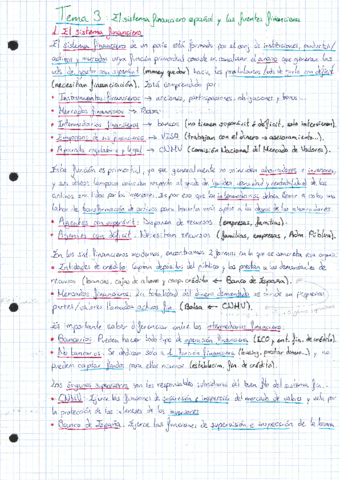 Tema 3. El sistema financiero español y las fuentes financieras
1. El sistema financiero
El sistema financiero de un país está formado por el conj. de instituciones, productos/
activos y mercados cuya función primordial consiste en canalizar el ahorro que generan las
uds. de gasto con superávit (money que dar) hacia los prestatarios o uds. de gasto con déficit
(necesitan financiación). Está comprendido por:
• Instrumentos financieros → acciones, participaciones, obligaciones y bonos...
• Mercados financieros → Bolsa.
• Intermediarios financieros → bancos (no tienen superávit o déficit, solo intervienen).
financieros → VISA (trabajan con el dinero → asesoramiento...).
• Aparato regulatorio y legal → CNMV (Comisión Nacional del Mercado de Valores).
Esta función es primordial, ya que generalmente no coinciden ahorradores e inversores,
y sus deseos tampoco coinciden respecto al grado de liquidez, seguridad y rentabilidad de los
activos emitidos por los inversores. Es por eso que los intermediarios deben llevar a cabo una
labor de transformación de activos para hacerlos más aptos a los deseos de los ahorradores.
• Agentes con superávit: Disponen de recursos (empresas, familias).
• Agentes con déficit: Necesitan recursos (familias, empresas, Adm. Pública).
En los sist. financieros modernos, encontramos 2 formas en la que se concreta esa organiz.:
• Entidades de crédito: Captan depósitos del público y los prestan a los demandantes de
recursos (bancos, cajas de ahorro y coop. crédito ← Banco de España).
• Mercados financieros: La totalidad del dinero demandado se divide en pequeñas
partes/valores llamados activos fin. (Bolsa ← CNMV).
Es importante saber diferenciar entre los intermediarios financieros:
• Bancarios: Pueden hacer todo tipo de operación financiera (ICO y ent. fin. de crédito).
• No bancarios: Se dedican solo a 1 función financiera (leasing, prestar dinero...), y no
pueden captar fondos para ellos mismos (establecim. fin. de crédito).
Los órganos supervisores son los responsables subsidiarios del buen fto. del sistema fin.:
• CNMV: Ejerce las funciones de supervisión e inspección del mercado de valores y vela por
la protección de los intereses de los inversores
• Banco de España: Ejerce las funciones de supervisión e inspección de la banca